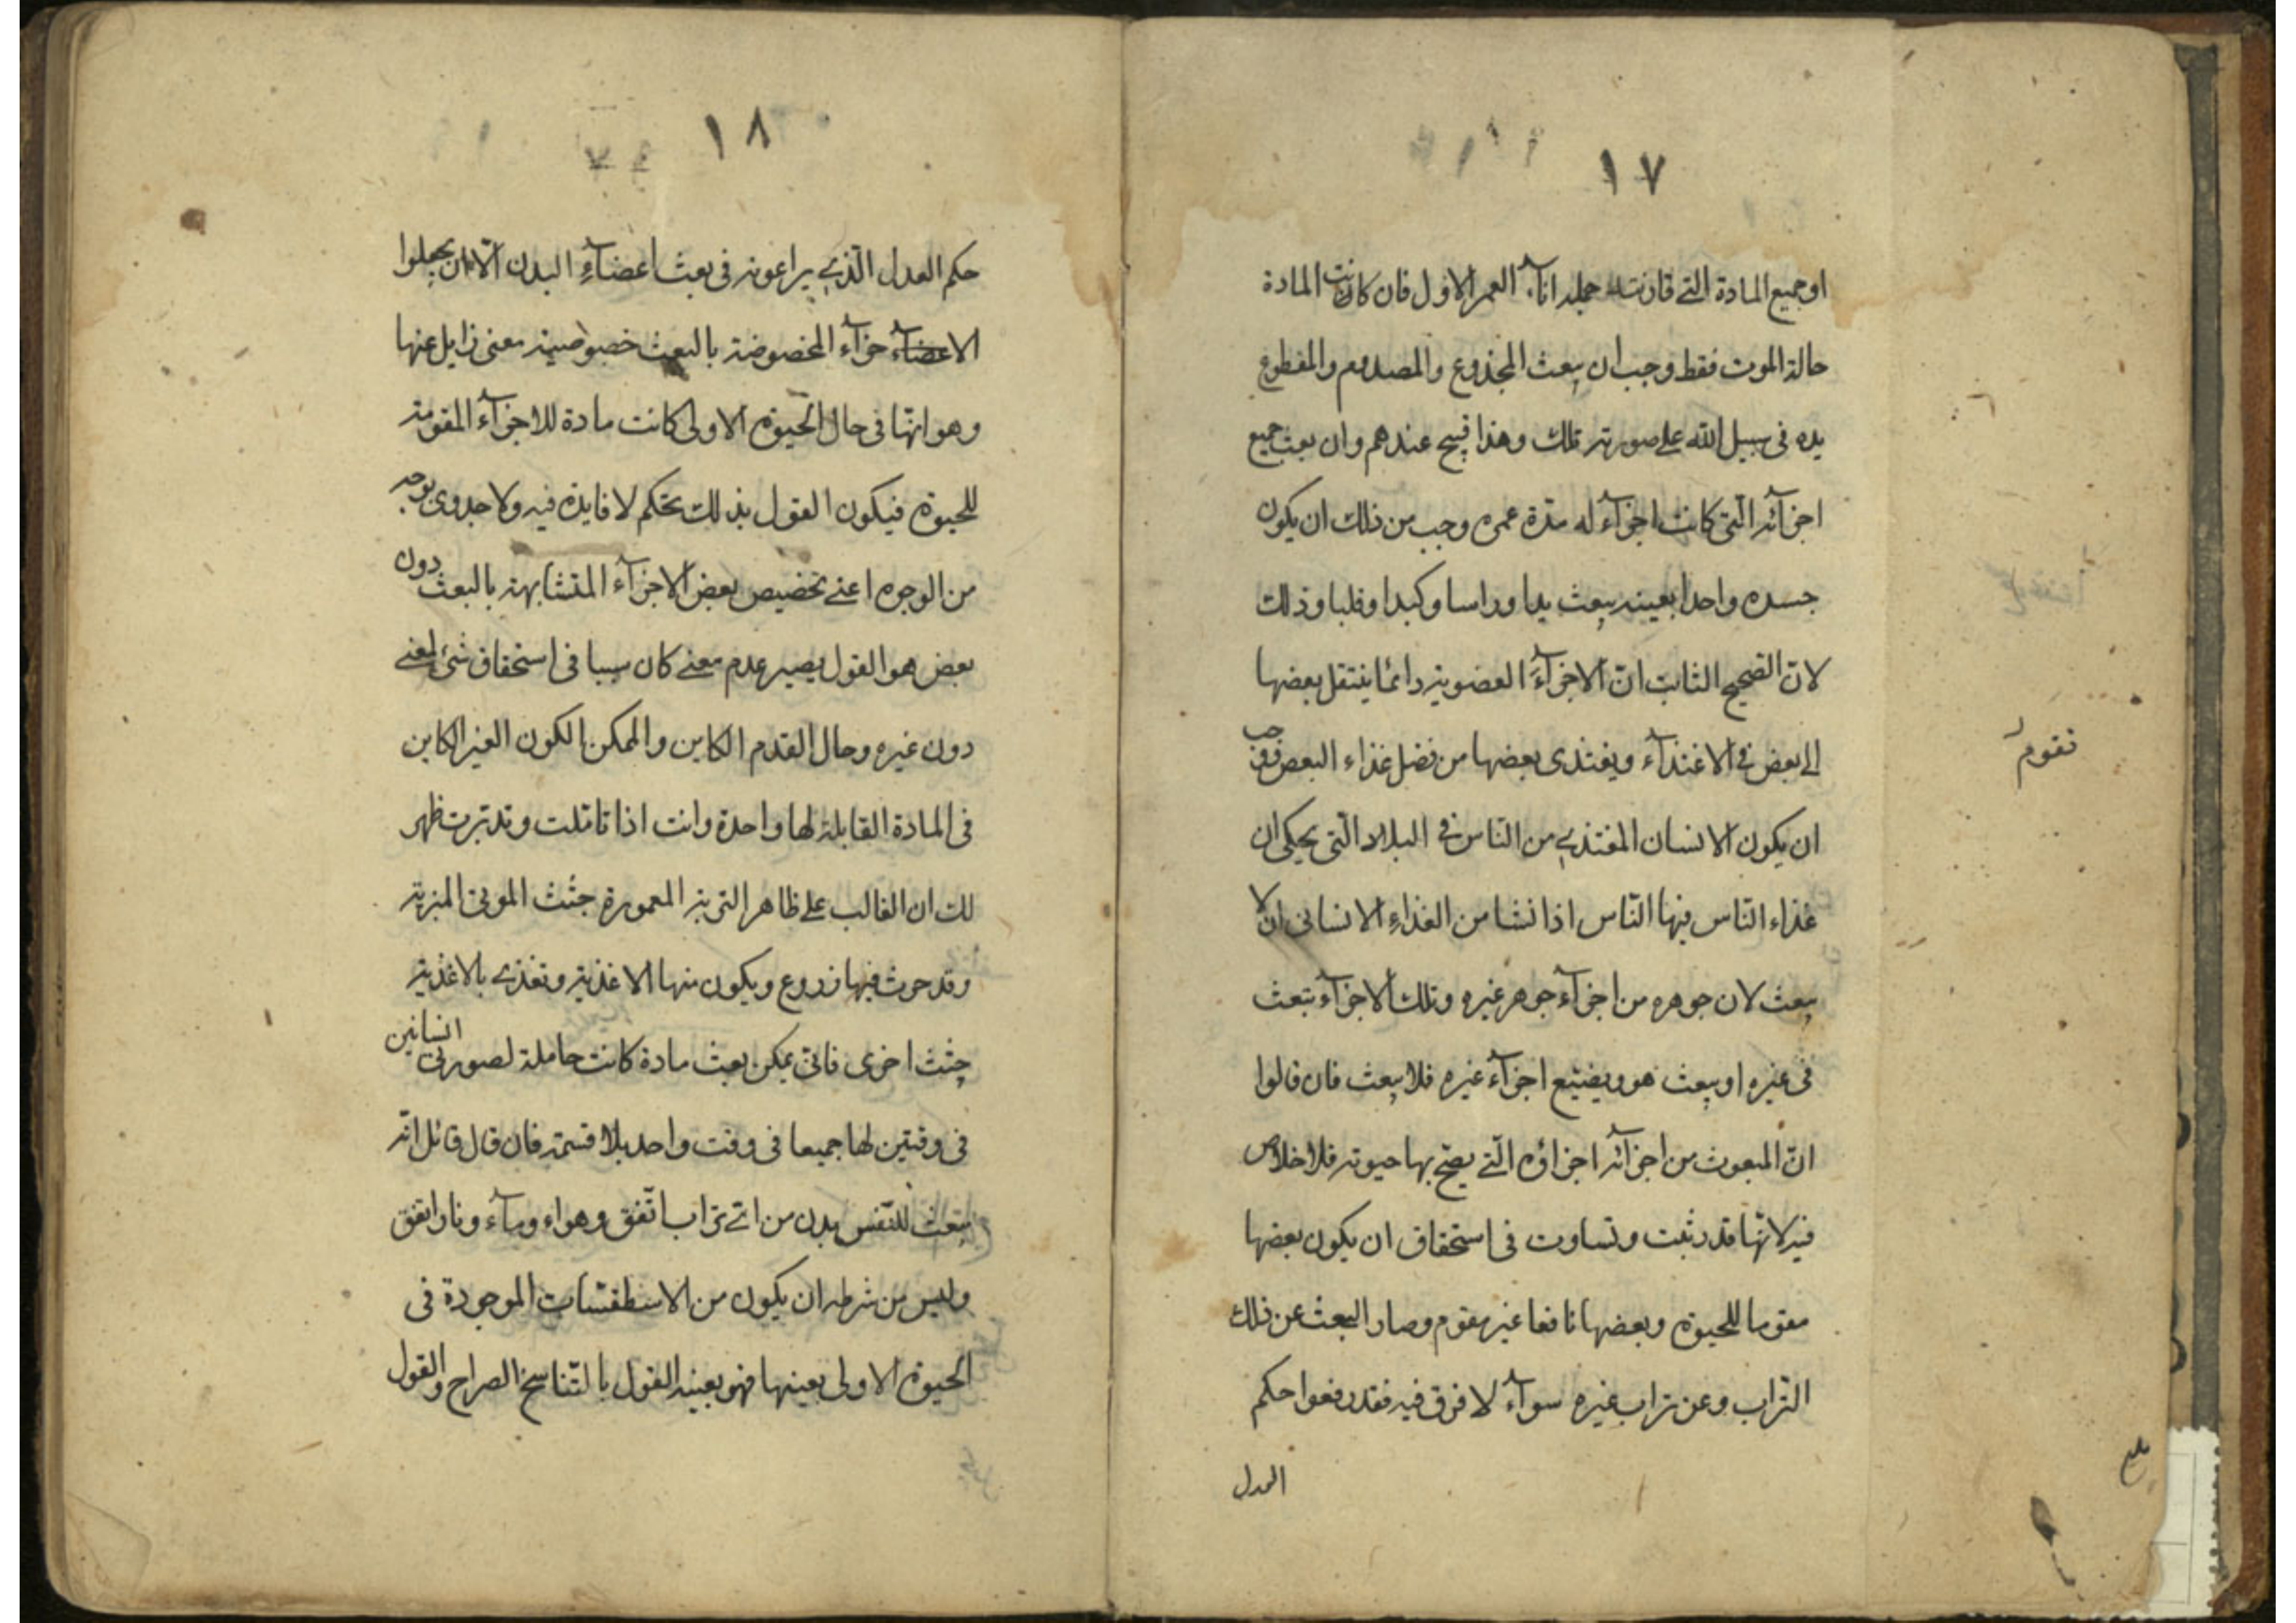 ١٧
او جميع المادة التى قارنته جملة اناء العمر الاول فان كانت المادة
حالة الموت فقط وجب ان يبعث المجذوع والمصدوم والمقطوع
يده فى سبيل الله على صورته تلك وهذا قبيح عندهم وان بعث جميع
اجزآئه الّتى كانت اجزآء له مدّة عمره وجب من ذلك ان يكون
جسده واحدا بعينه يبعث يدا وراسا وكبدا وقلبا وذلك
لانّ الصحيح الثابت انّ الاجزآء العضوية دائما ينتقل بعضها
الى بعض فى الاغتذآء ويغتذى بعضها من فضل غذاء البعض فوجب
ان يكون الانسان المغتذى من النّاس فى البلاد الّتى يحكى ان
غذاء النّاس فيها النّاس اذا نشا من الغذاء الانسانى ان لا
يبعث لان جوهره من اجزآء جوهر غيره وتلك الاجزآء تبعث
فى غيره او يبعث هو ويضيّع اجزآء غيره فلا يبعث فان قالوا
انّ المبعوث من اجزآئه اجزاؤه الّتى يصحّ بها حيوته فلا خلاص
فيه لانّها قد ثبت وتساوت فى استحقاق ان يكون بعضها
مقوما للحيوة وبعضها نافعا غير مقوم وصار البعث عن ذلك
التراب وعن تراب غيره سوآء لا فرق فيه فقد رفعوا حكم
العدل
تقوم
١٨
حكم العدل الّذى يراعونه فى بعث اعضآء البدن الّا ان يجعلوا
الاعضآء جزآء المخصوصة بالبعث خصوصية معنى زايل عنها
وهو انّها فى حال الحيوة الاولى كانت مادة للاجزآء المقومة
للحيوة فيكون القول بذلك تحكم لا فايدة فيه ولا جدوى بوجه
من الوجوه اعنى تخصيص بعض الاجزآء المتشابهة بالبعث دون
بعض هو القول يصير عدم معنى كان سببا فى استحقاق شئ لمعنى
دون غيره وحال القدم الكاين والممكن الكون الغير الكاين
فى المادة القابلة لها واحدة وانت اذا تاملت وتدبرت ظهر
لك ان الغالب على ظاهر التربة المعمورة جثث الموتى المتربة
وقد حرث فيها وزرع ويكون منها الاغذية وتغذى بالاغذية
جثث اخرى فانى يمكن بعث مادة كانت حاملة لصورتى انسانين
فى وقتين لها جميعا فى وقت واحد بلا قسمة فان قال قائل انّه
يبعث للنّفس بدن من اىّ تراب اتّفق وهواء ومآء ونار اتفق
وليس من شرطه ان يكون من الاسطقسّات الموجودة فى
الحيوة الاولى بعينها فهو بعينه القول بالتّناسخ الصراح والقول